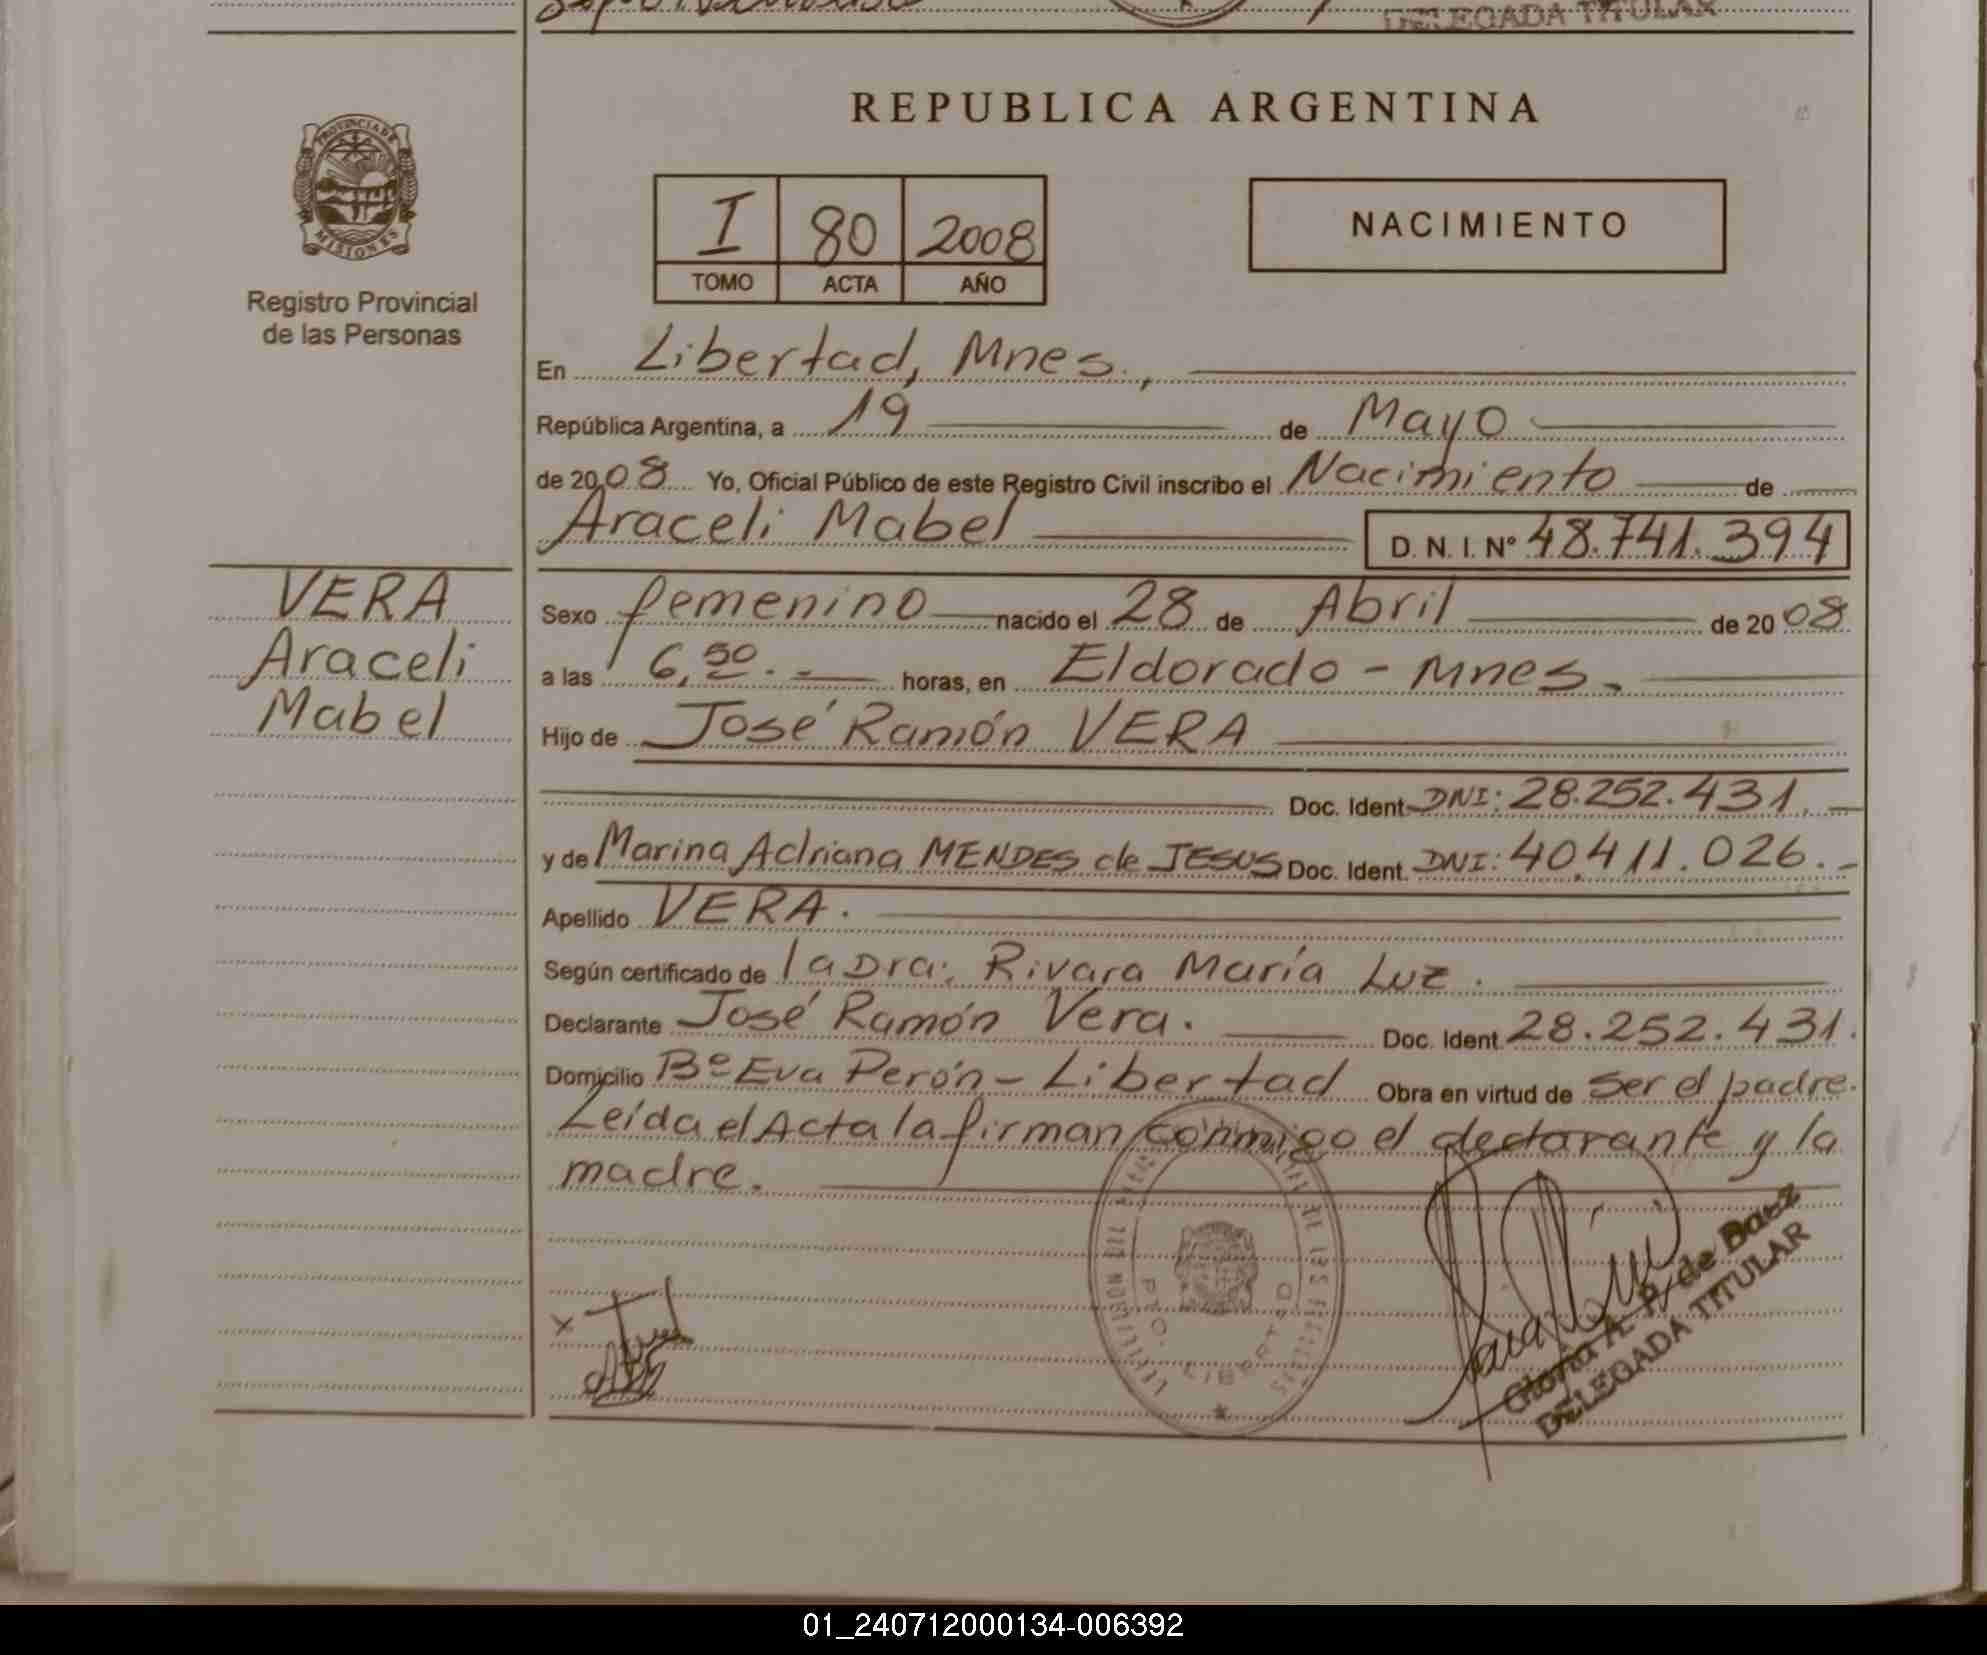 DELEGADA TITULAR
REPUBLICA ARGENTINA
PROVINCIA DE
MISIONES
Registro Provincial
de las Personas
I 80 2008
TOMO ACTA AÑO
NACIMIENTO
En Libertad, Mnes.,
República Argentina, a 19 de Mayo
de 2008 Yo, Oficial Público de este Registro Civil inscribo el Nacimiento de
Araceli Mabel D. N. I. Nº 48.741.394
VERA
Araceli
Mabel
Sexo femenino nacido el 28 de Abril de 2008
a las 6,50.- horas, en Eldorado - Mnes.
Hijo de José Ramón VERA
Doc. Ident. DNI: 28.252.431.
y de Marina Adriana MENDES de JESUS Doc. Ident. DNI: 40.411.026.-
Apellido VERA.
Según certificado de la Dra. Rivara María Luz.
Declarante José Ramón Vera. Doc. Ident. 28.252.431.
Domicilio Bº Eva Perón - Libertad Obra en virtud de ser el padre.
Leída el Acta la firman conmigo el declarante y la
madre.
PTO. LIBERTAD
Gloria A. P. de Baez
DELEGADA TITULAR
01_240712000134-006392